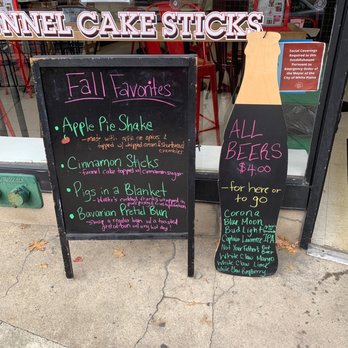 NNEL CAKE STICKS
Fall Favorites
Apple Pie Shake
- made with apple pie spices &
topped w/ whipped cream & shortbread
crumbles
Cinnamon Sticks
- funnel cake topped w/ cinnamon sugar
Pigs in a Blanket
cocktail franks wrapped in
puff pastry
Bavarian Pretzel Bun
- swap a regular bun w/ a toasted
pretzel bun w/ any hot dog!
Social Distancing
Required in this
Establishment
Pursuant to
Emergency Order of
the Mayor of the
City of White Plains
ALL
BEERS
$4.00
- for here or
to go
Corona
Blue Moon
Bud Light
Captain Lawrence IPA
Not Your Father's Root
Beer
White Claw Mango
White Claw Lime
White Claw Raspberry